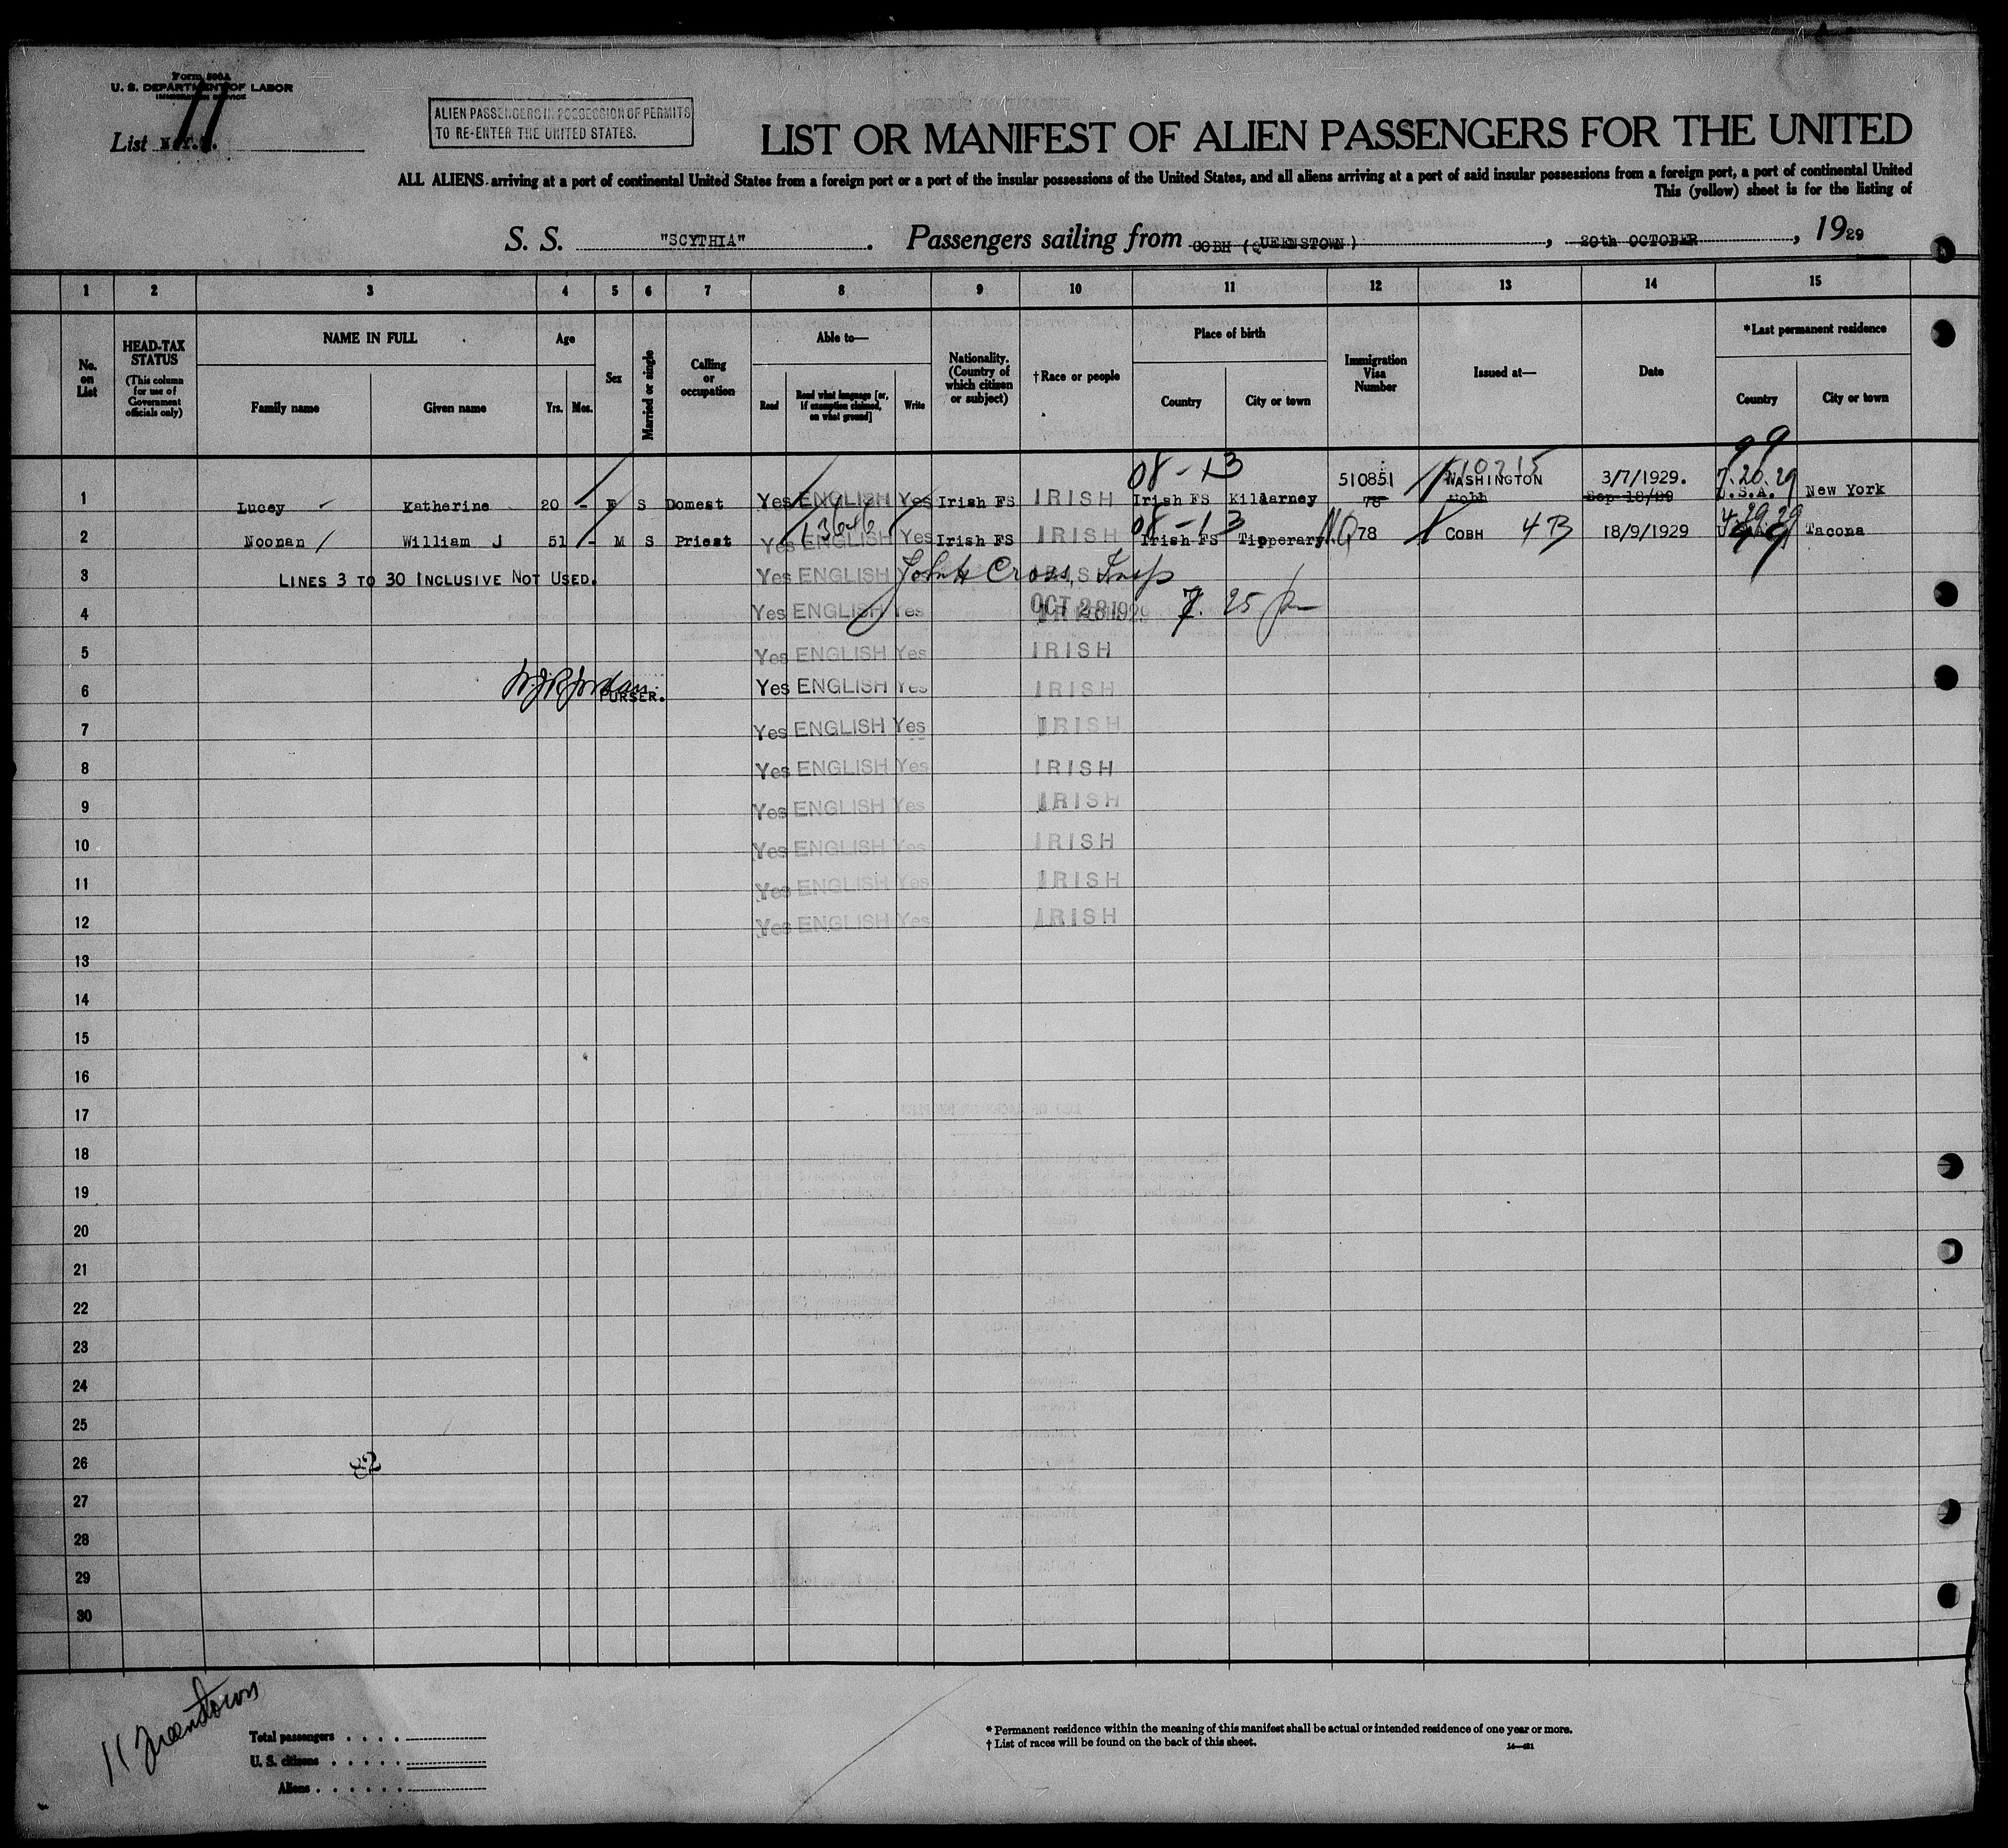 Form 500A
U. S. DEPARTMENT OF LABOR
IMMIGRATION SERVICE
List 11
ALIEN PASSENGERS IN POSSESSION OF PERMITS
TO RE-ENTER THE UNITED STATES.
LIST OR MANIFEST OF ALIEN PASSENGERS FOR THE UNITED
ALL ALIENS arriving at a port of continental United States from a foreign port or a port of the insular possessions of the United States, and all aliens arriving at a port of said insular possessions from a foreign port, a port of continental United
This (yellow) sheet is for the listing of
S. S. "SCYTHIA". Passengers sailing from COBH (QUEENSTOWN), 20th OCTOBER, 1929
1 2 3 4 5 6 7 8 9 10 11 12 13 14 15
No. on List
HEAD-TAX STATUS (This column for use of Government officials only)
NAME IN FULL
Family name Given name
Age
Yrs. Mos.
Sex
Married or single
Calling or occupation
Able to—
Read Read what language [or, if exemption claimed, on what ground] Write
Nationality. (Country of which citizen or subject)
†Race or people
Place of birth
Country City or town
Immigration Visa Number
Issued at—
Date
*Last permanent residence
Country City or town
99
08-13 510851 10215 WASHINGTON 3/7/1929. 7.20.29
1 Lucey Katherine 20 - F S Domest Yes ENGLISH Yes Irish FS IRISH Irish FS Killarney 78 Cobh Sep 18/29 U.S.A. New York
13646 08-13 4.29.29
2 Noonan William J 51 - M S Priest Yes ENGLISH Yes Irish FS IRISH Irish FS Tipperary NQ 78 COBH 4B 18/9/1929 Tacona
99
3 LINES 3 TO 30 INCLUSIVE NOT USED. Yes ENGLISH Yes John H Cross, Insp
4 Yes ENGLISH Yes IRISH OCT 28 1929 7.25 pm
5 Yes ENGLISH Yes IRISH
6 PURSER. Yes ENGLISH Yes IRISH
7 Yes ENGLISH Yes IRISH
8 Yes ENGLISH Yes IRISH
9 Yes ENGLISH Yes IRISH
10 Yes ENGLISH Yes IRISH
11 Yes ENGLISH Yes IRISH
12 Yes ENGLISH Yes IRISH
13
14
15
16
17
18
19
20
21
22
23
24
25
26 82
27
28
29
30
11 Queenstown
Total passengers . . . .
U. S. citizens . . . . .
Aliens . . . . . .
* Permanent residence within the meaning of this manifest shall be actual or intended residence of one year or more.
† List of races will be found on the back of this sheet.